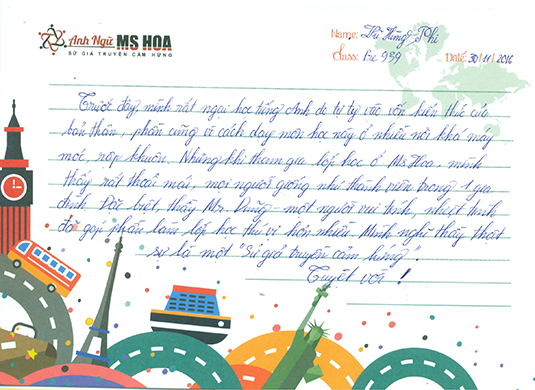 Anh Ngữ MS HOA
SỨ GIẢ TRUYỀN CẢM HỨNG
Name: Thi Hùng Phi
Class: Pre 939 Date: 30/11/2016
Trước đây, mình rất ngại học tiếng Anh do tự ty vào vốn kiến thức của
bản thân, phần cũng vì cách dạy môn học này ở nhiều nơi khá máy
móc, rập khuôn. Nhưng khi tham gia lớp học ở Ms. Hoa, mình
thấy rất thoải mái, mọi người giống như thành viên trong 1 gia
đình. Đặc biệt, thầy Mr. Dũng - một người vui tính, nhiệt tình
đã góp phần làm lớp học thú vị hơn nhiều. Mình nghĩ thầy thật
sự là một "Sứ giả truyền cảm hứng".
Tuyệt vời !